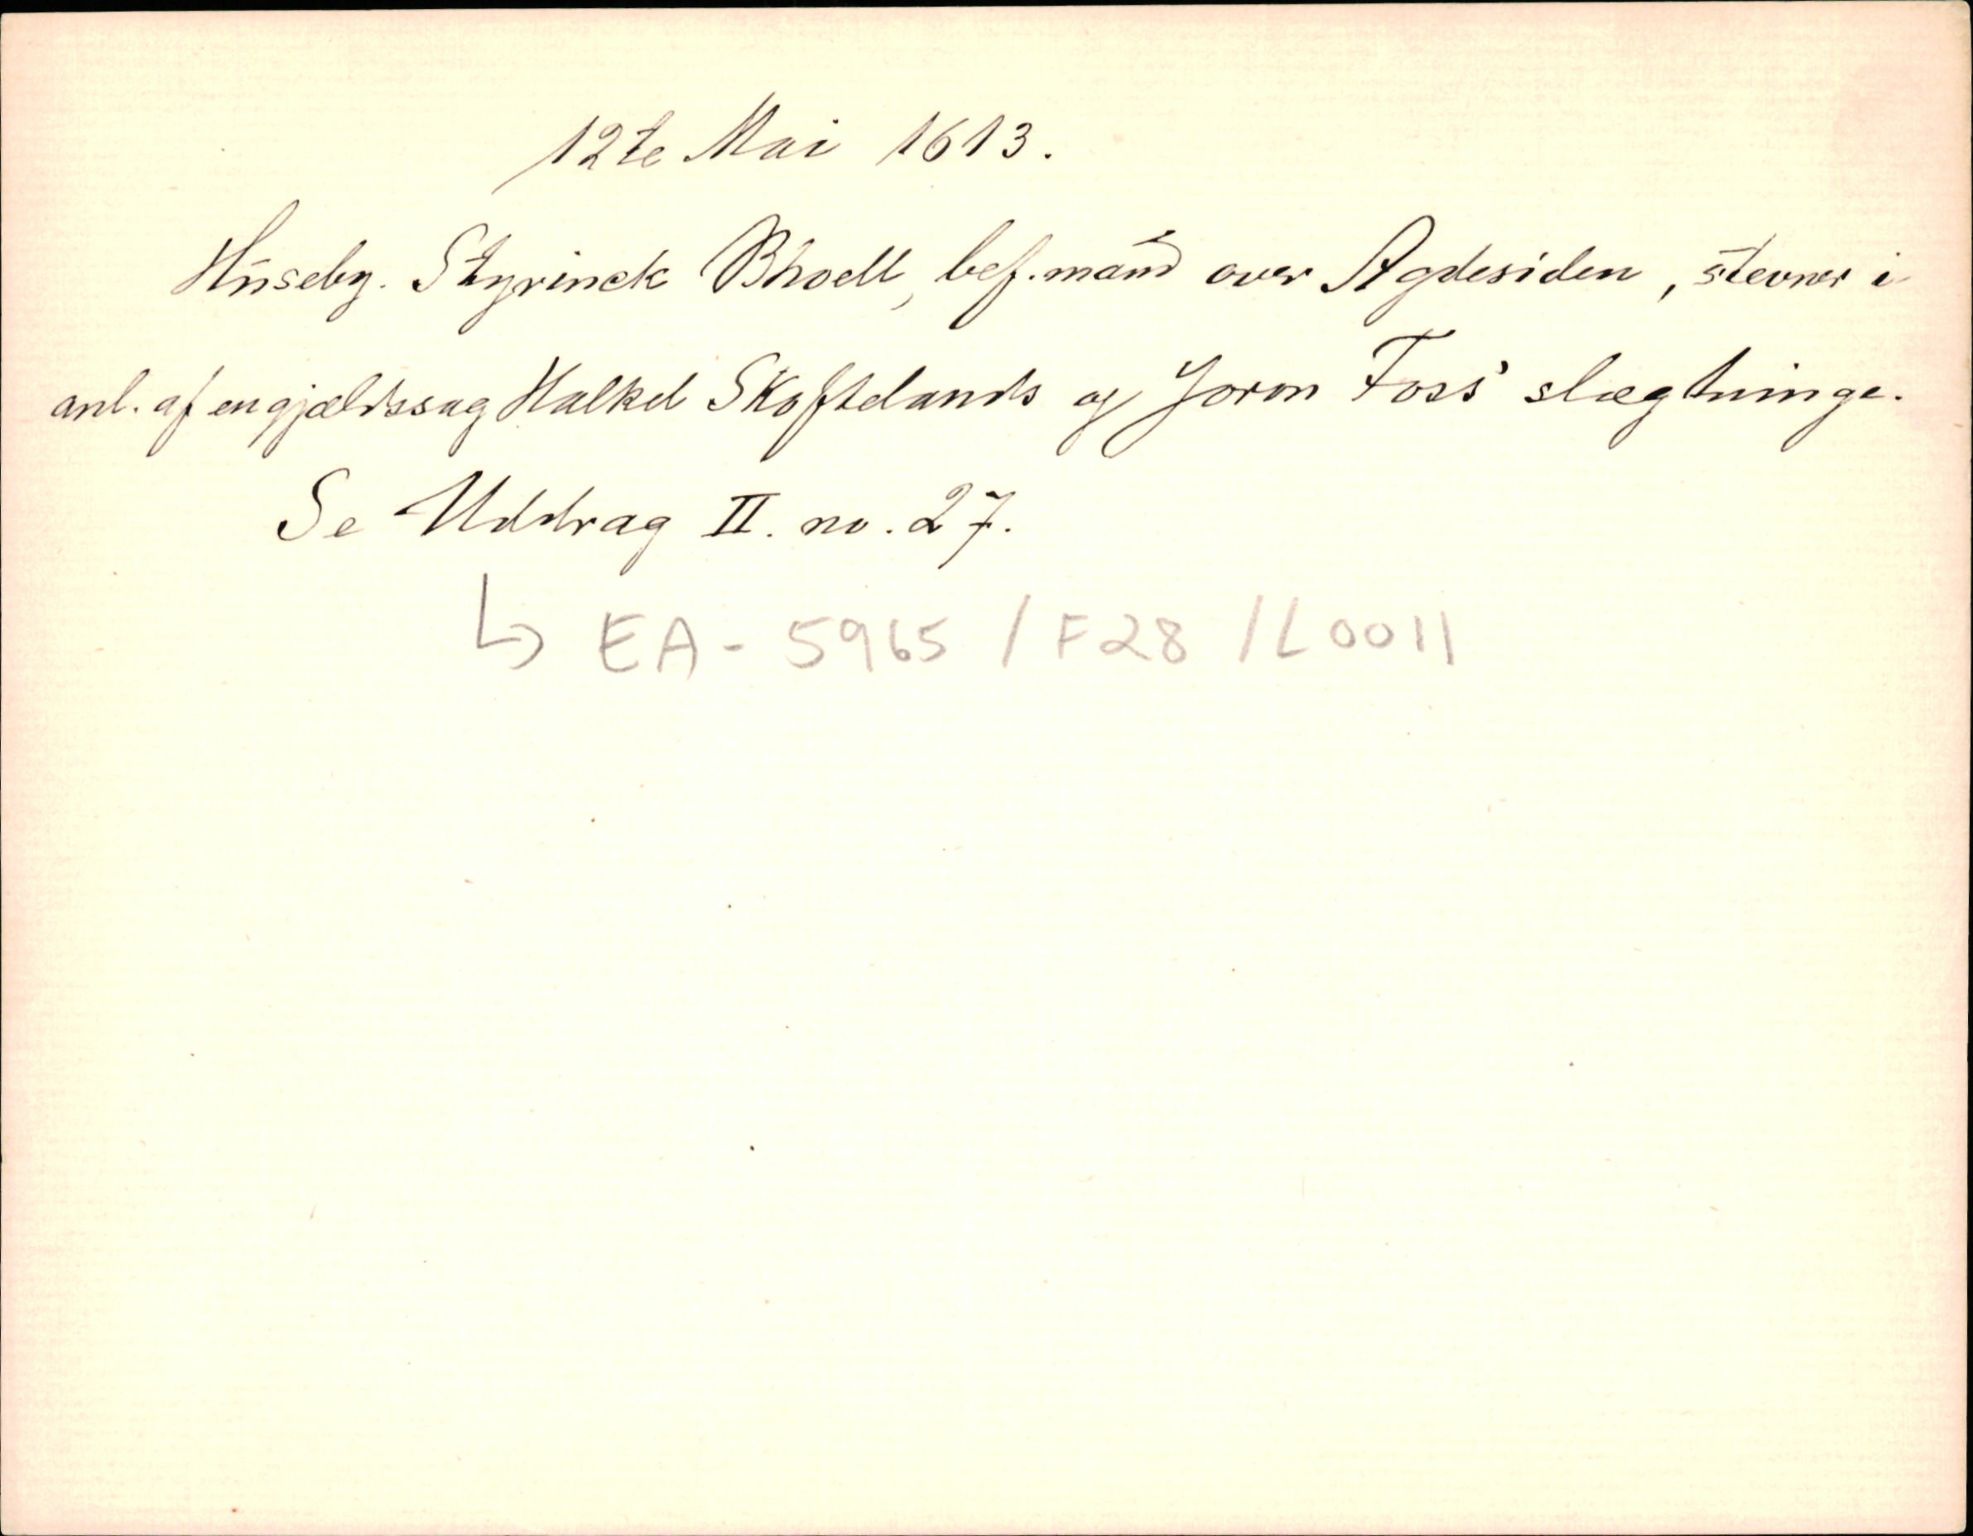 12te Mai 1613.
Huseby. Styrinck Bhoell, bef.mand over Agdesiden, stevner i
anl. af en gjældssag Halkel Skoftelands og Joron Foss' slægtninge.
Se Uddrag II. no. 27.
↳ EA - 5965 / F28 / L0011